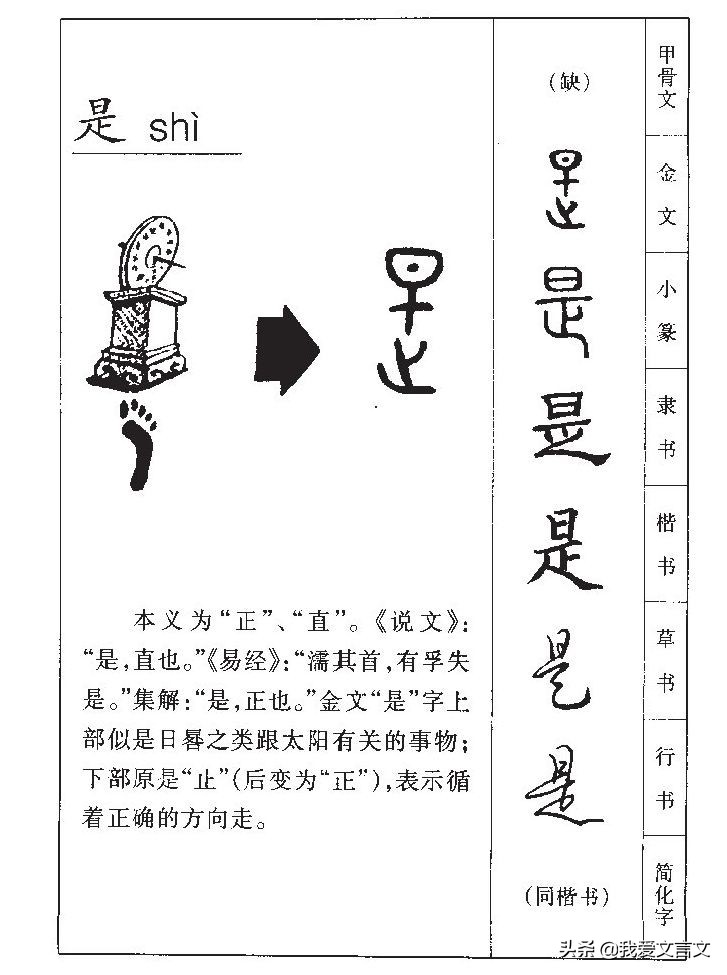 是 shì
本义为“正”、“直”。《说文》：
“是，直也。”《易经》：“濡其首，有孚失
是。”集解：“是，正也。”金文“是”字上
部似是日晷之类跟太阳有关的事物；
下部原是“止”（后变为“正”），表示循
着正确的方向走。
（缺） 甲骨文
是 金文
是 小篆
是 隶书
是 楷书
是 草书
是 行书
（同楷书） 简化字
头条 @我爱文言文